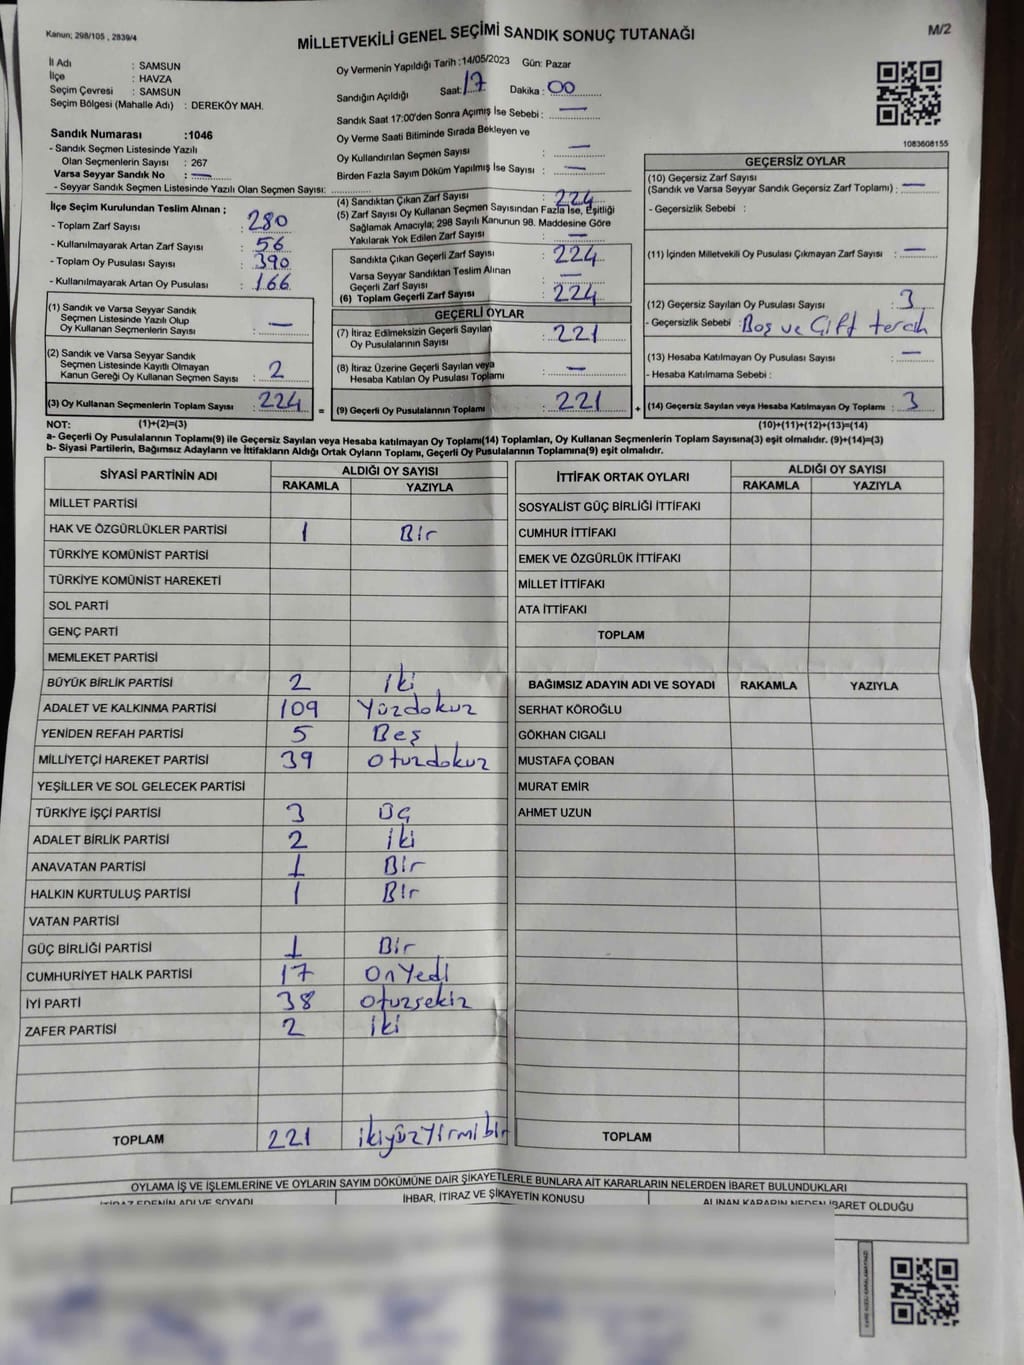 Kanun; 298/105 , 2839/4
MİLLETVEKİLİ GENEL SEÇİMİ SANDIK SONUÇ TUTANAĞI
M/2
İl Adı : SAMSUN
İlçe : HAVZA
Seçim Çevresi : SAMSUN
Seçim Bölgesi (Mahalle Adı) : DEREKÖY MAH.
Sandık Numarası :1046
- Sandık Seçmen Listesinde Yazılı
Olan Seçmenlerin Sayısı : 267
Varsa Seyyar Sandık No : —
- Seyyar Sandık Seçmen Listesinde Yazılı Olan Seçmen Sayısı:
Oy Vermenin Yapıldığı Tarih :14/05/2023 Gün: Pazar
Sandığın Açıldığı Saat: 17 Dakika : 00
Sandık Saat 17:00'den Sonra Açımış İse Sebebi : —
Oy Verme Saati Bitiminde Sırada Bekleyen ve
Oy Kullandırılan Seçmen Sayısı : —
Birden Fazla Sayım Döküm Yapılmış İse Sayısı : —
1083608155
İlçe Seçim Kurulundan Teslim Alınan ;
- Toplam Zarf Sayısı : 280
- Kullanılmayarak Artan Zarf Sayısı : 56
- Toplam Oy Pusulası Sayısı : 390
- Kullanılmayarak Artan Oy Pusulası : 166
(1) Sandık ve Varsa Seyyar Sandık
Seçmen Listesinde Yazılı Olup
Oy Kullanan Seçmenlerin Sayısı : —
(2) Sandık ve Varsa Seyyar Sandık
Seçmen Listesinde Kayıtlı Olmayan
Kanun Gereği Oy Kullanan Seçmen Sayısı : 2
(3) Oy Kullanan Seçmenlerin Toplam Sayısı : 224 =
(4) Sandıktan Çıkan Zarf Sayısı : 224
(5) Zarf Sayısı Oy Kullanan Seçmen Sayısından Fazla İse, Eşitliği
Sağlamak Amacıyla; 298 Sayılı Kanunun 98. Maddesine Göre
Yakılarak Yok Edilen Zarf Sayısı : —
Sandıkta Çıkan Geçerli Zarf Sayısı : 224
Varsa Seyyar Sandıktan Teslim Alınan
Geçerli Zarf Sayısı : —
(6) Toplam Geçerli Zarf Sayısı : 224
GEÇERLİ OYLAR
(7) İtiraz Edilmeksizin Geçerli Sayılan
Oy Pusulalarının Sayısı : 221
(8) İtiraz Üzerine Geçerli Sayılan veya
Hesaba Katılan Oy Pusulası Toplamı : —
(9) Geçerli Oy Pusulalarının Toplamı : 221 +
GEÇERSİZ OYLAR
(10) Geçersiz Zarf Sayısı
(Sandık ve Varsa Seyyar Sandık Geçersiz Zarf Toplamı) : —
- Geçersizlik Sebebi :
(11) İçinden Milletvekili Oy Pusulası Çıkmayan Zarf Sayısı : —
(12) Geçersiz Sayılan Oy Pusulası Sayısı : 3
- Geçersizlik Sebebi : Boş ve Çift tercih
(13) Hesaba Katılmayan Oy Pusulası Sayısı : —
- Hesaba Katılmama Sebebi :
(14) Geçersiz Sayılan veya Hesaba Katılmayan Oy Toplamı : 3
NOT: (1)+(2)=(3) (10)+(11)+(12)+(13)=(14)
a- Geçerli Oy Pusulalarının Toplamı(9) ile Geçersiz Sayılan veya Hesaba katılmayan Oy Toplamı(14) Toplamları, Oy Kullanan Seçmenlerin Toplam Sayısına(3) eşit olmalıdır. (9)+(14)=(3)
b- Siyasi Partilerin, Bağımsız Adayların ve İttifakların Aldığı Ortak Oyların Toplamı, Geçerli Oy Pusulalarının Toplamına(9) eşit olmalıdır.
SİYASİ PARTİNİN ADI ALDIĞI OY SAYISI
RAKAMLA YAZIYLA
MİLLET PARTİSİ
HAK VE ÖZGÜRLÜKLER PARTİSİ 1 Bir
TÜRKİYE KOMÜNİST PARTİSİ
TÜRKİYE KOMÜNİST HAREKETİ
SOL PARTİ
GENÇ PARTİ
MEMLEKET PARTİSİ
BÜYÜK BİRLİK PARTİSİ 2 İki
ADALET VE KALKINMA PARTİSİ 109 Yüzdokuz
YENİDEN REFAH PARTİSİ 5 Beş
MİLLİYETÇİ HAREKET PARTİSİ 39 Otuzdokuz
YEŞİLLER VE SOL GELECEK PARTİSİ
TÜRKİYE İŞÇİ PARTİSİ 3 Üç
ADALET BİRLİK PARTİSİ 2 İki
ANAVATAN PARTİSİ 1 Bir
HALKIN KURTULUŞ PARTİSİ 1 Bir
VATAN PARTİSİ
GÜÇ BİRLİĞİ PARTİSİ 1 Bir
CUMHURİYET HALK PARTİSİ 17 Onyedi
İYİ PARTİ 38 Otuzsekiz
ZAFER PARTİSİ 2 İki
TOPLAM 221 ikiyüzyirmibir
İTTİFAK ORTAK OYLARI ALDIĞI OY SAYISI
RAKAMLA YAZIYLA
SOSYALİST GÜÇ BİRLİĞİ İTTİFAKI
CUMHUR İTTİFAKI
EMEK VE ÖZGÜRLÜK İTTİFAKI
MİLLET İTTİFAKI
ATA İTTİFAKI
TOPLAM
BAĞIMSIZ ADAYIN ADI VE SOYADI RAKAMLA YAZIYLA
SERHAT KÖROĞLU
GÖKHAN CIGALI
MUSTAFA ÇOBAN
MURAT EMİR
AHMET UZUN
TOPLAM
OYLAMA İŞ VE İŞLEMLERİNE VE OYLARIN SAYIM DÖKÜMÜNE DAİR ŞİKAYETLERLE BUNLARA AİT KARARLARIN NELERDEN İBARET BULUNDUKLARI
İTİRAZ EDENİN ADI VE SOYADI İHBAR, İTİRAZ VE ŞİKAYETİN KONUSU ALINAN KARARIN NEDEN İBARET OLDUĞU